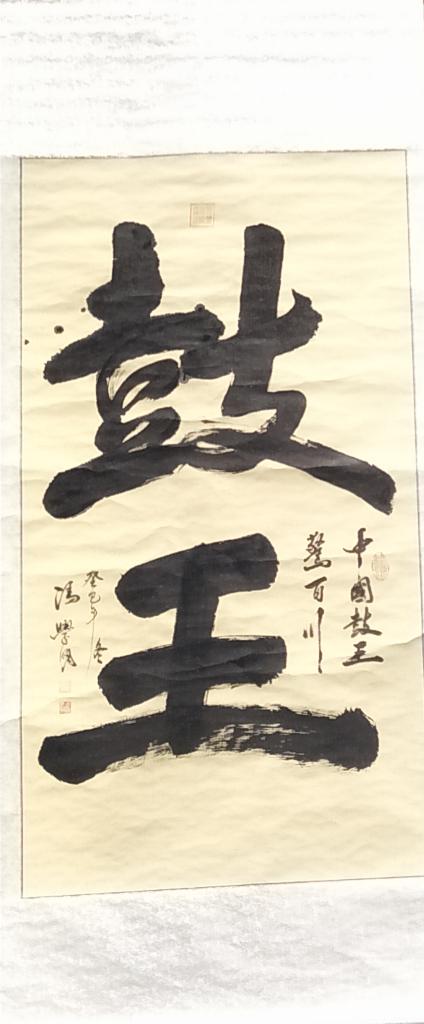 鼓王
中國鼓王
驚百川
癸巳年冬
馮學国